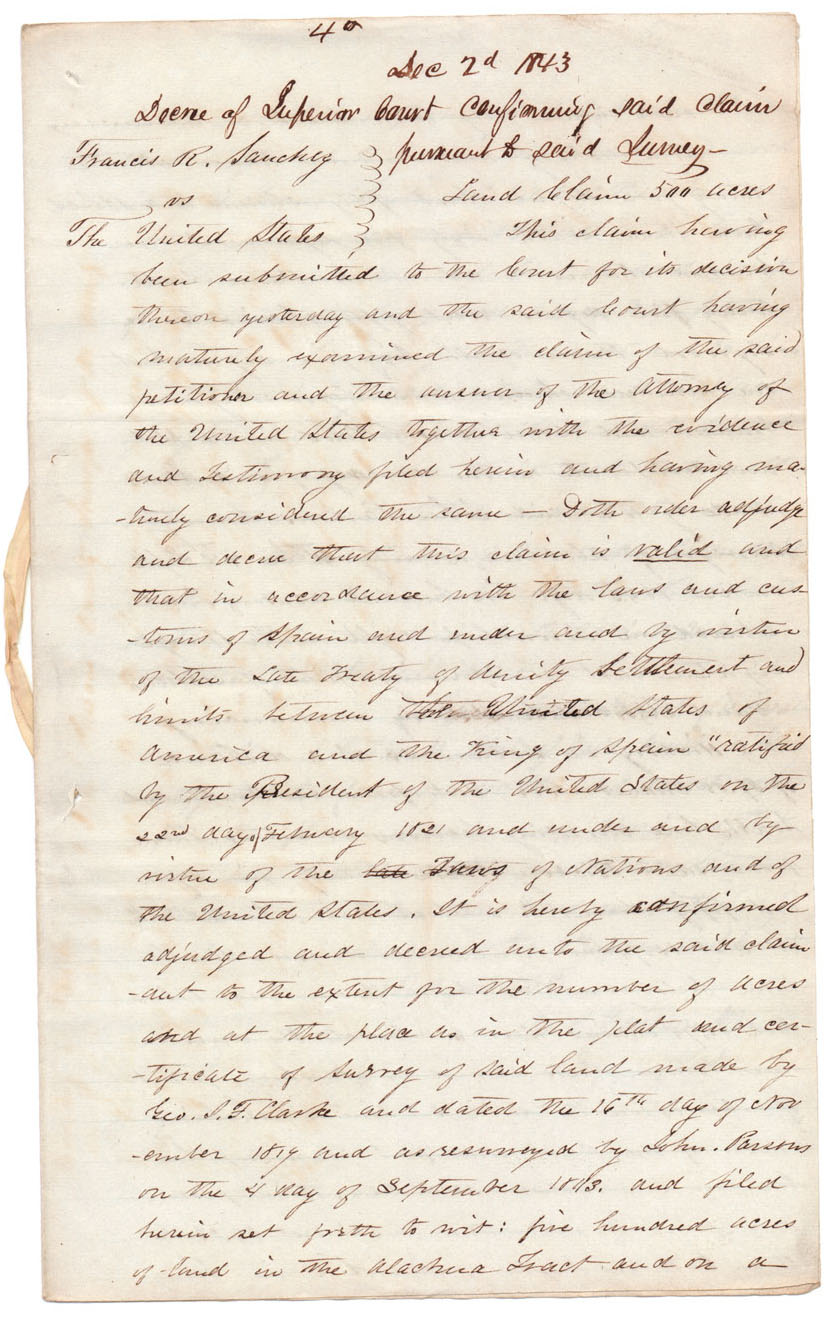 4º
Dec 2d 1843
Decree of Superior Court confirming said claim
Francis R. Sanchez pursuant to said Survey—
vs Land Claim 500 acres
The United States This claim having
been submitted to the Court for its decision
thereon yesterday and the said Court having
maturely examined the claim of the said
petitioner and the answer of the Attorney of
the United States together with the evidence
and Testimony filed herein and having ma-
-turely considered the same — Doth order adjudge
and decree that this claim is valid and
that in accordance with the laws and cus-
-toms of Spain and under and by virtue
of the Late Treaty of Amity Settlement and
limits between the United States of
America and the King of Spain "ratified
by the President of the United States on the
22nd day of February 1821 and under and by
virtue of the late Laws of Nations and of
the United States. It is hereby confirmed
adjudged and decreed unto the said claim
-ant to the extent for the number of acres
and at the place as in the plat and cer-
-tificate of Survey of said land made by
Geo. J. F. Clarke and dated the 16th day of Nov
-ember 1819 and as resurveyed by John. Parsons
on the 4 day of September 1843. and filed
herein set forth to wit: five hundred acres
of land in the Alachua Tract and on a